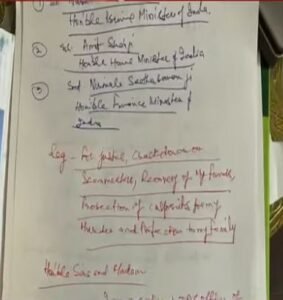 Hon'ble Prime Minister of India.
② Sh. Amit Shahji
Hon'ble Home Minister of India
③ Smt Nirmala Seetharaman ji
Hon'ble Finance Minister of
India
Reg - For Justice, Crackdown on
Scammesters, Recovery of My funds,
Prosecution of culprits for my
Murder and Protection to my family
Hon'ble Sirs and Madam